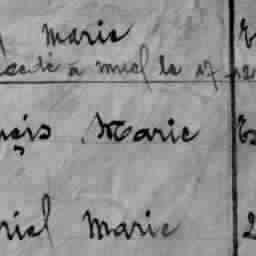 Marie
décédé à Niul le 17
nçis Marie
riel Marie
2